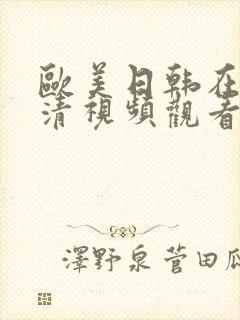 歐美日韩在
清視頻觀看
澤野泉菅田瓜